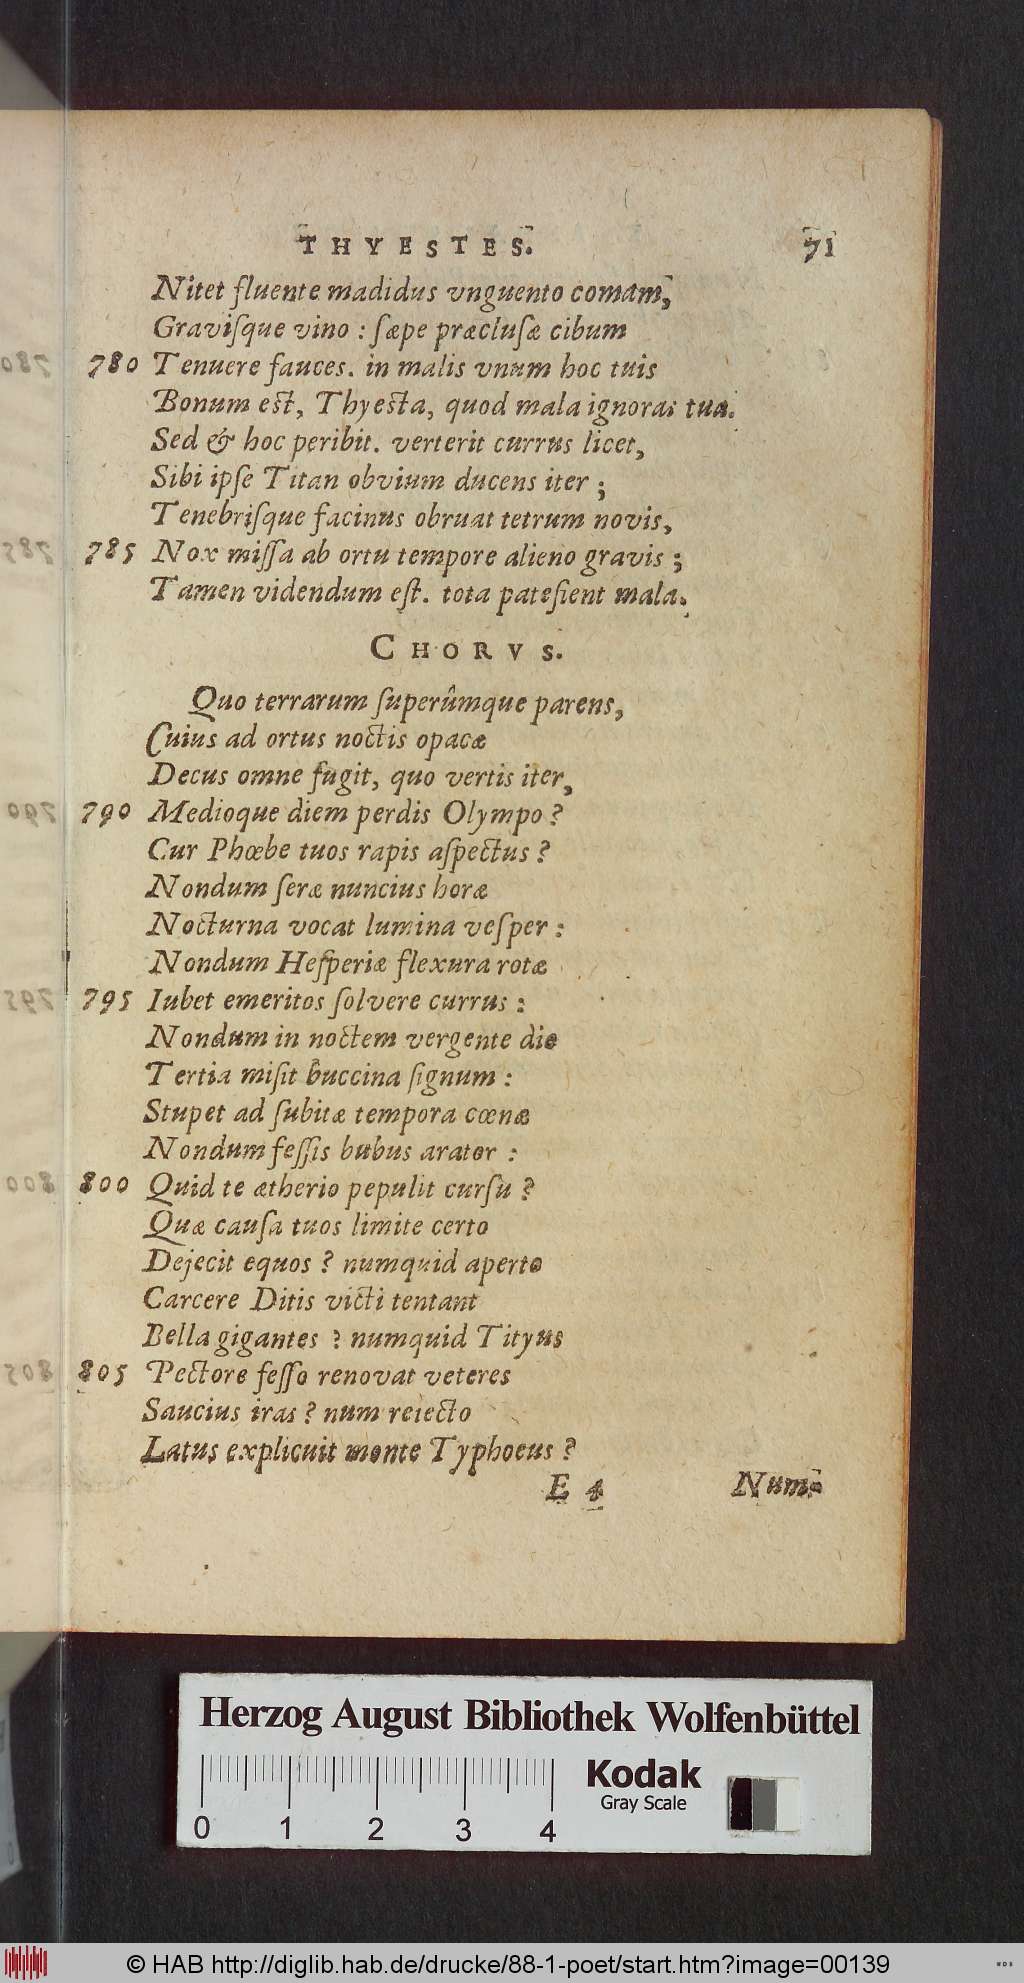 THYESTES. 71
Nitet fluente madidus vnguento comam,
Graviſque vino : ſæpe præcluſæ cibum
780 Tenuere fauces. in malis vnum hoc tuis
Bonum eſt, Thyeſta, quod mala ignoras tua.
Sed & hoc peribit. verterit currus licet,
Sibi ipſe Titan obvium ducens iter ;
Tenebriſque facinus obruat tetrum novis,
785 Nox miſſa ab ortu tempore alieno gravis ;
Tamen videndum eſt. tota pateſient mala.
CHORVS.
Quo terrarum ſuperûmque parens,
Cuius ad ortus noctis opacæ
Decus omne fugit, quo vertis iter,
790 Medioque diem perdis Olympo ?
Cur Phœbe tuos rapis aſpectus ?
Nondum ſeræ nuncius horæ
Nocturna vocat lumina veſper :
Nondum Heſperiæ flexura rotæ
795 Iubet emeritos ſolvere currus :
Nondum in noctem vergente die
Tertia miſit buccina ſignum :
Stupet ad ſubitæ tempora cœnæ
Nondum feſſis bubus arator :
800 Quid te ætherio pepulit curſu ?
Quæ cauſa tuos limite certo
Dejecit equos ? numquid aperto
Carcere Ditis victi tentant
Bella gigantes ? numquid Tityus
805 Pectore feſſo renovat veteres
Saucius iras ? num reiecto
Latus explicuit monte Typhoeus ?
E 4 Num-
Herzog August Bibliothek Wolfenbüttel
Kodak
Gray Scale
0 1 2 3 4
© HAB http://diglib.hab.de/drucke/88-1-poet/start.htm?image=00139